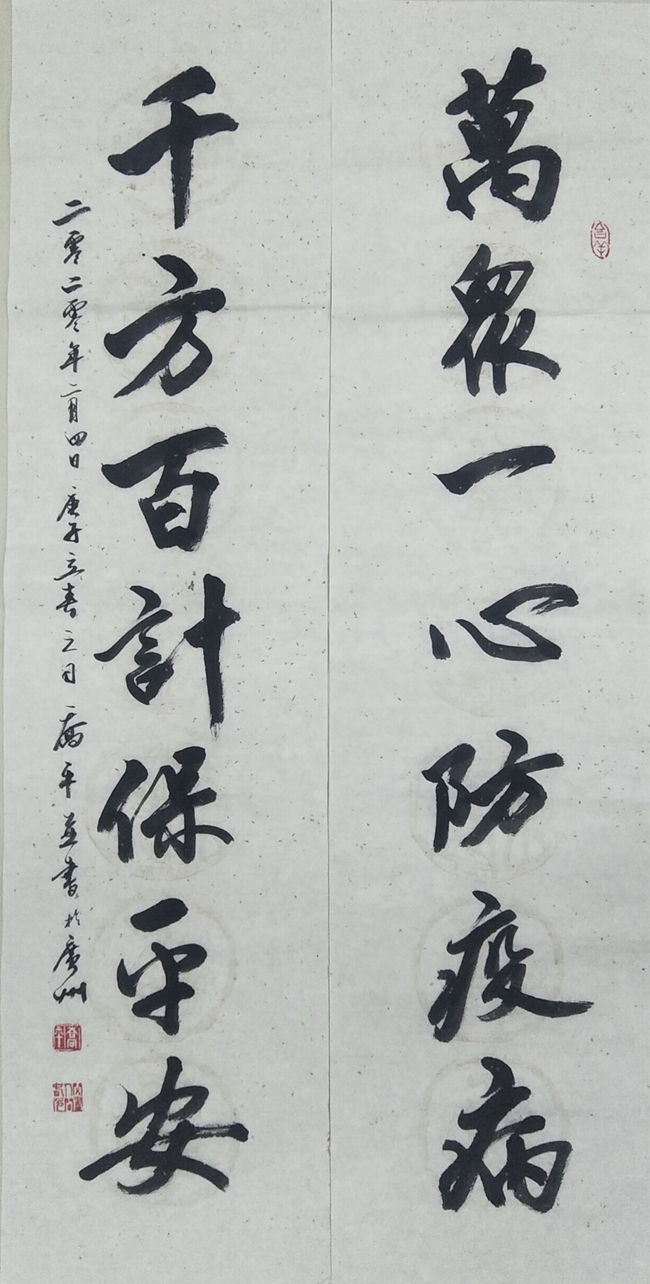 萬眾一心防疫病
千方百計保平安
二零二零年二月四日庚子立春之日喬平並書於廣州